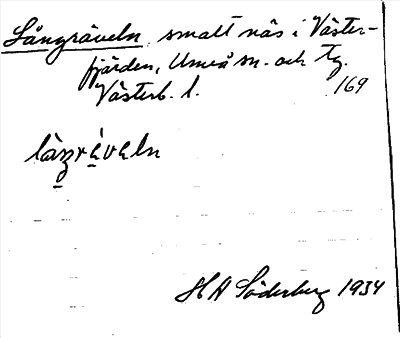 Långräveln, smalt näs i Väster-
fjärden, Umeå sn. och tg.
Västerb. l. 169
làŋrèvəln
H A Söderberg 1934